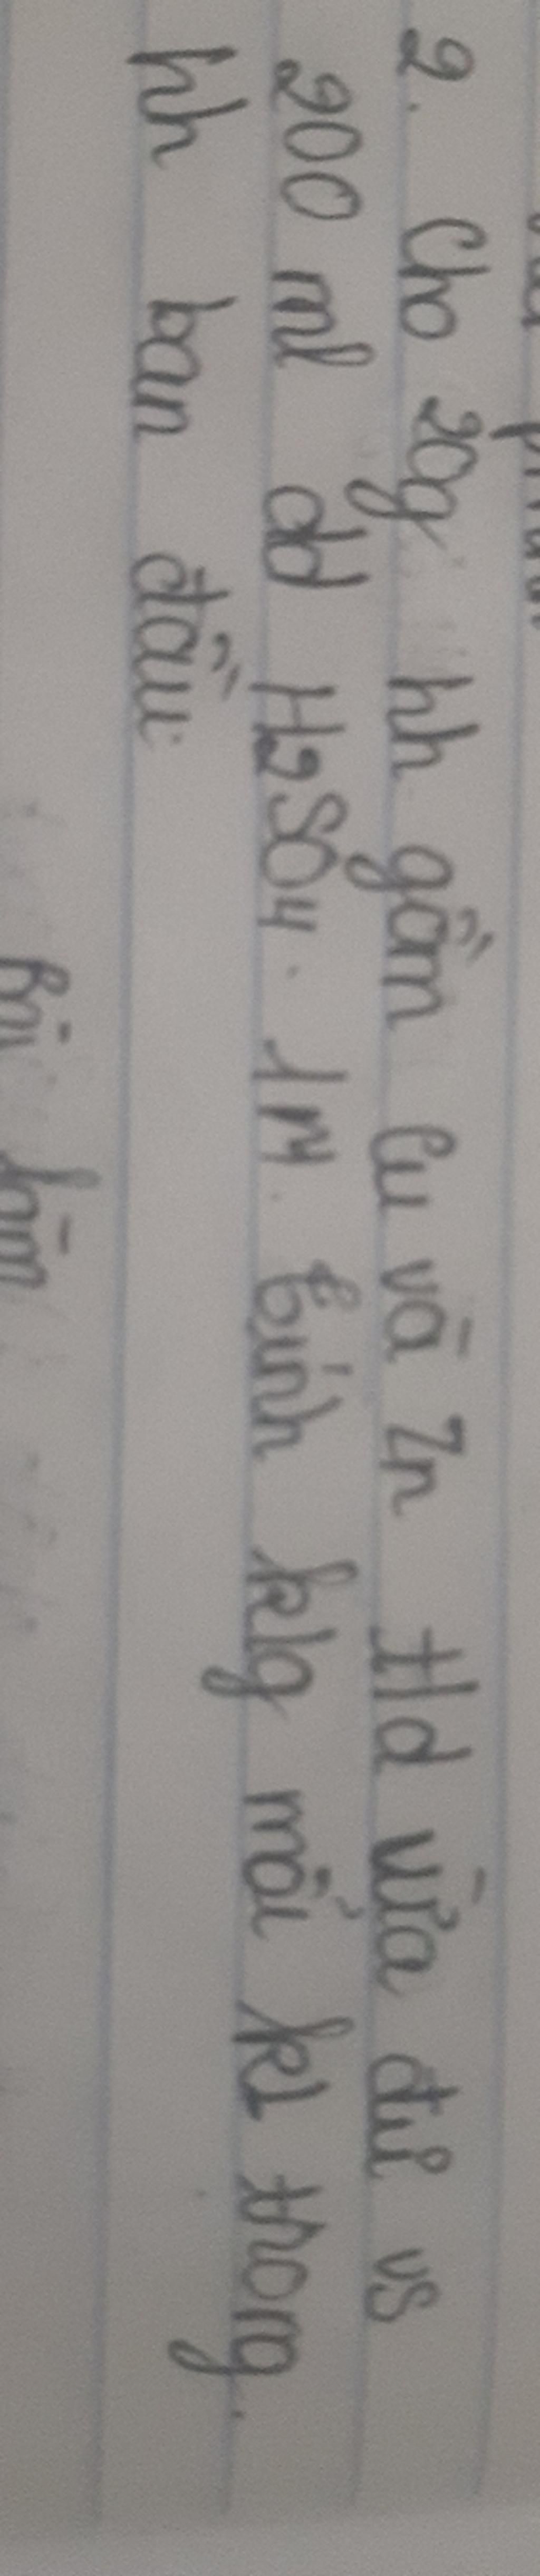 2. Cho 20g hh gồm Cu và Zn tld vừa đủ vs
200 ml dd H2SO4 1M. tính klg mỗi kl trong
hh ban đầu.
Bài làm